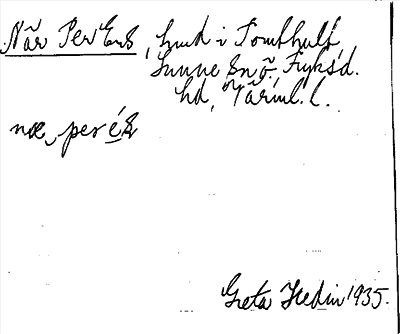 När Per Ers, hmd i Tomthult,
Sunne sn ö., Fryksd.
hd, Värml. l.
næ, perés
Greta Hedin 1935.